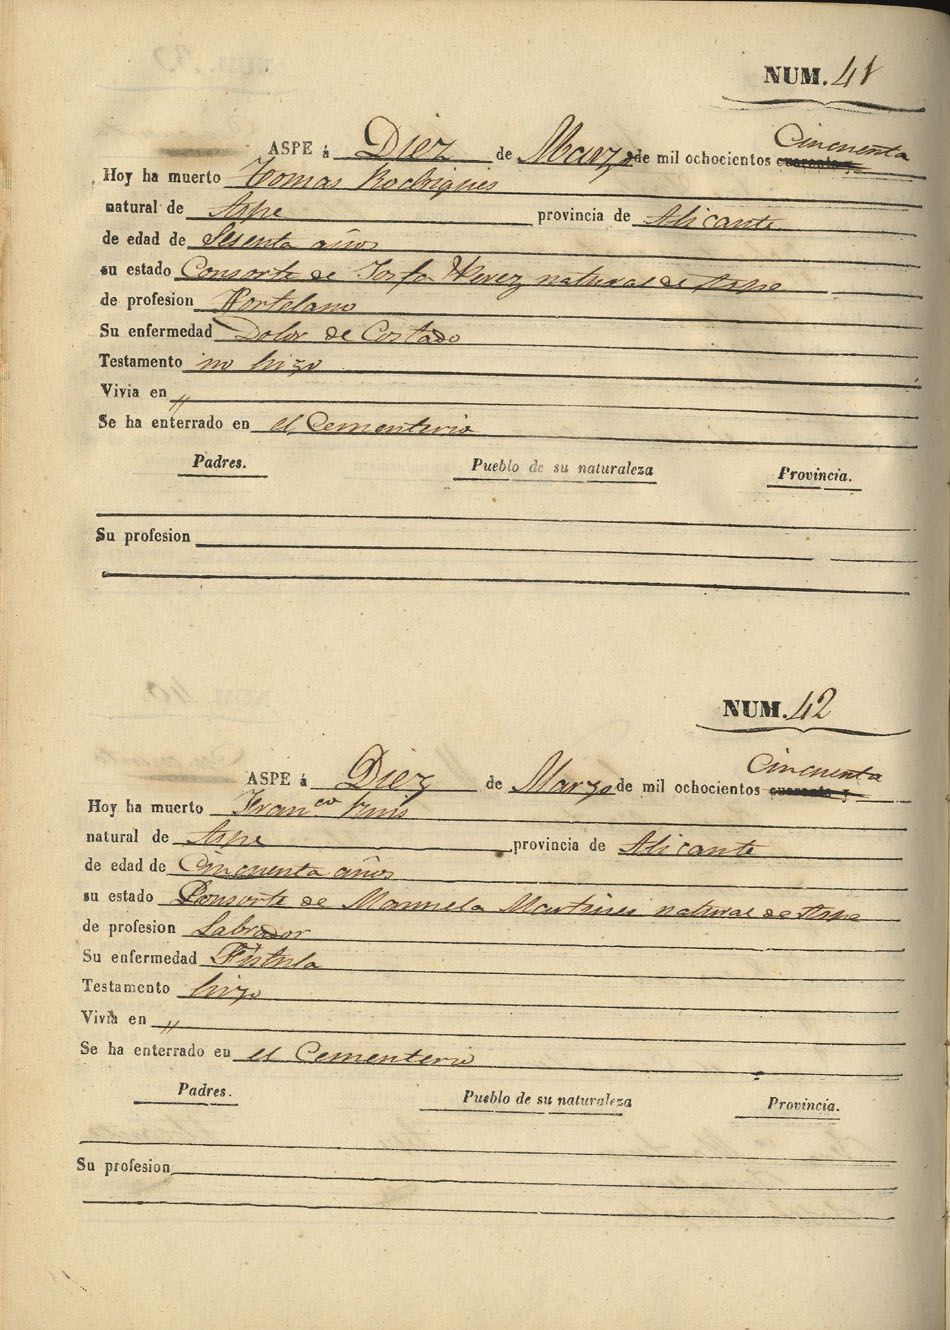 NUM. 41
Cincuenta
ASPE á Diez de Marzo de mil ochocientos cuarenta y
Hoy ha muerto Tomas Rodrigues
natural de Aspe provincia de Alicante
de edad de Sesenta años
su estado Consorte de Josefa Perez natural de Aspe
de profesion Hortelano
Su enfermedad Dolor de Costado
Testamento no hizo
Vivia en "
Se ha enterrado en el Cementerio
Padres. Pueblo de su naturaleza Provincia.
Su profesion
NUM. 42
Cincuenta
ASPE á Diez de Marzo de mil ochocientos cuarenta y
Hoy ha muerto Fran.co
natural de Aspe provincia de Alicante
de edad de Cincuenta años
su estado Consorte de Manuela Martines natural de Aspe
de profesion Labrador
Su enfermedad Fistula
Testamento hizo
Vivia en "
Se ha enterrado en el Cementerio
Padres. Pueblo de su naturaleza Provincia.
Su profesion